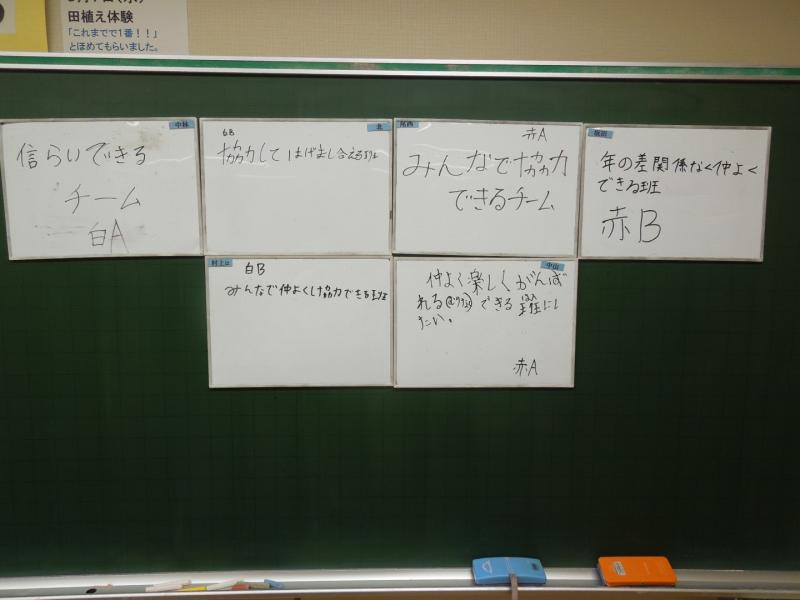 田植え体験
「これまでで1番！！」
とほめてもらいました。
中林
信らいできる
チーム
白A
北
協力して はげまし合える班
尾西
赤A
みんなで協力
できるチーム
年の差関係なく仲よく
できる班
赤B
白B
みんなで仲よくし協力できる班
中山
仲よく楽しくがんば
れる できる 班にし
たい。
赤A